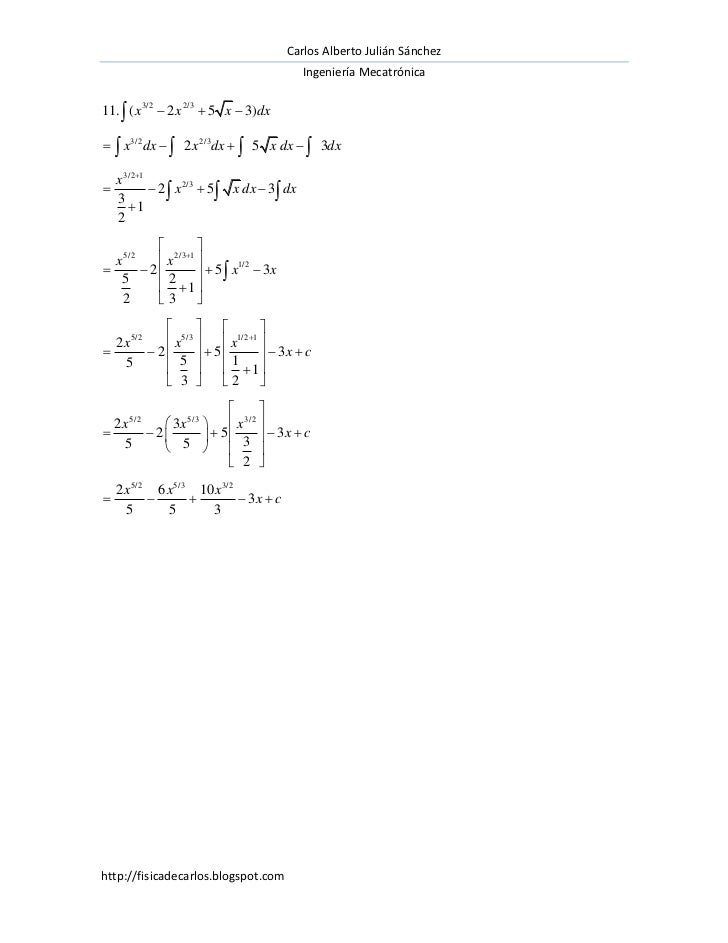 Carlos Alberto Julián Sánchez
Ingeniería Mecatrónica
11. ∫ (x^{3/2} − 2x^{2/3} + 5√x − 3)dx
= ∫ x^{3/2} dx − ∫ 2x^{2/3} dx + ∫ 5√x dx − ∫ 3dx
= \frac{x^{3/2+1}}{\frac{3}{2}+1} − 2∫ x^{2/3} + 5∫ √x dx − 3∫ dx
= \frac{x^{5/2}}{\frac{5}{2}} − 2[\frac{x^{2/3+1}}{\frac{2}{3}+1}] + 5∫ x^{1/2} − 3x
= \frac{2x^{5/2}}{5} − 2[\frac{x^{5/3}}{\frac{5}{3}}] + 5[\frac{x^{1/2+1}}{\frac{1}{2}+1}] − 3x + c
= \frac{2x^{5/2}}{5} − 2(\frac{3x^{5/3}}{5}) + 5[\frac{x^{3/2}}{\frac{3}{2}}] − 3x + c
= \frac{2x^{5/2}}{5} − \frac{6x^{5/3}}{5} + \frac{10x^{3/2}}{3} − 3x + c
http://fisicadecarlos.blogspot.com